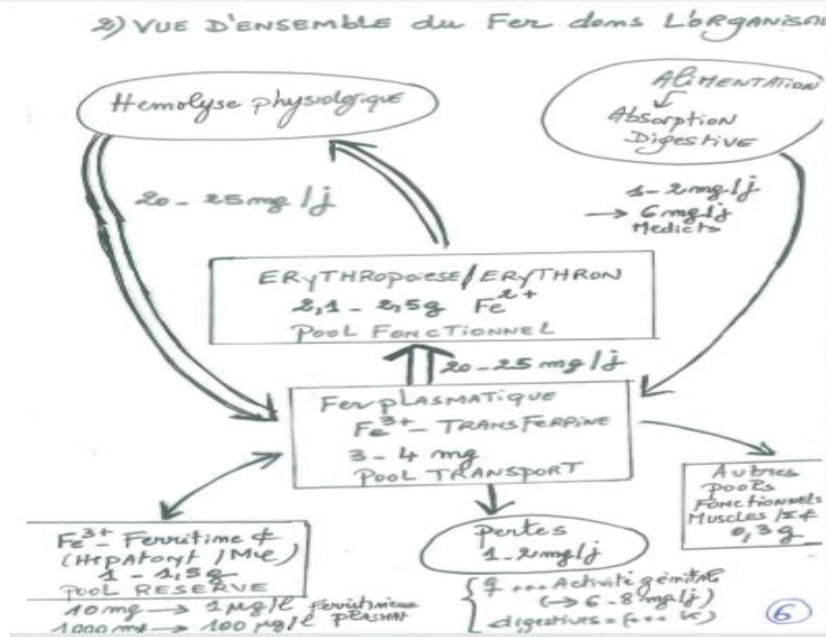 2) VUE D'ENSEMBLE du Fer dans L'ORGANISM
Hemolyse physiologique
ALIMENTATION
Absorption
Digestive
20 - 25 mg/j
1-2 mg/j
→ 6 mg/j
Medicts
ERYTHROPOIESE/ERYTHRON
2,1 - 2,5g Fe2+
POOL FONCTIONNEL
20-25 mg/j
Fer PLASMATIQUE
Fe3+ - TRANSFERRINE
3-4 mg
POOL TRANSPORT
Autres
POOLS
FONCTIONNELS
Muscles /
0,3 g
Fe3+ - Ferritine
(HEPATocyt /
1 - 1,5g
POOL RESERVE
10mg → 1 µg/l Ferritinemie
1000 mg → 100 µg/l PLASMAT
Pertes
1-2 mg/j
♀ ... Activité génitale
(→ 6-8 mg/j)
digestives = (... K)
6